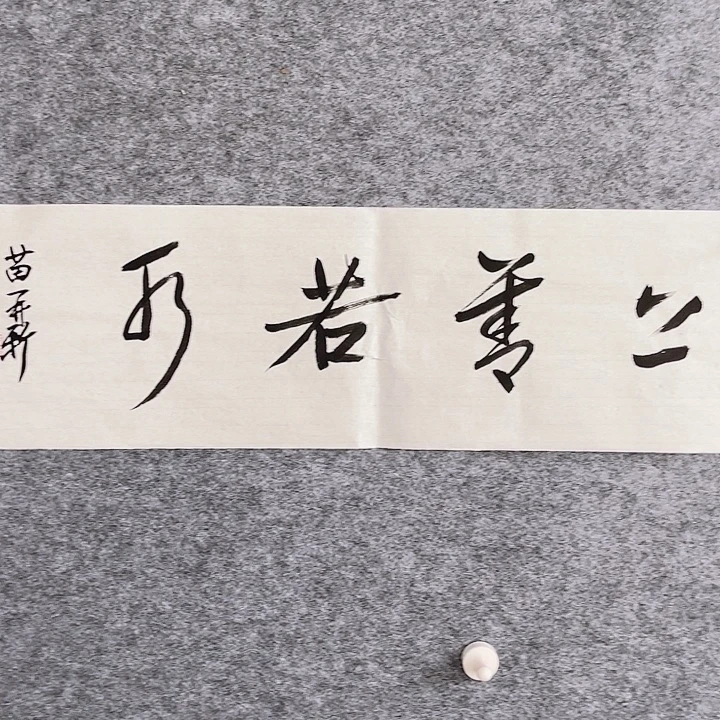 上善若水
苗再新